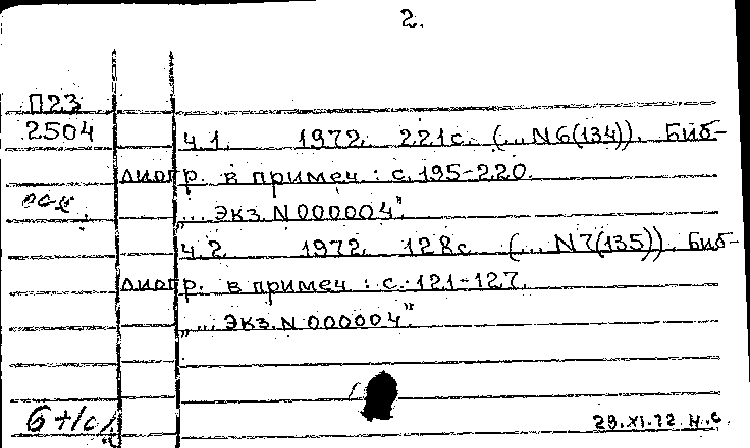 2.
П23
2504
ч.1. 1972. 221с. (... N6(134)). Биб-
лиогр. в примеч.: с.195-220.
"... Экз. N 000004".
ч.2 1972. 128с (... N7(135)). Биб-
лиогр. в примеч.: с.121-127.
"... Экз. N 000004".
29.XI.72 н.с.